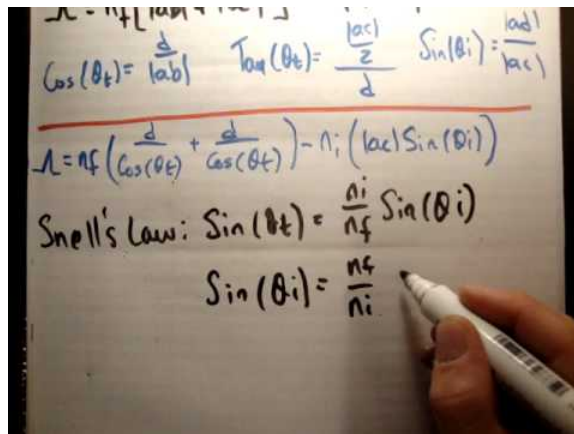 Λ = nf[|ab| + |bc|]
Cos(θt) = d/|ab| Tan(θt) = (|ac|/2)/d Sin(θi) = |ad|/|ac|
Λ = nf(d/Cos(θt) + d/Cos(θt)) - ni(|ac|Sin(θi))
Snell's Law: Sin(θt) = ni/nf Sin(θi)
Sin(θi) = nf/ni